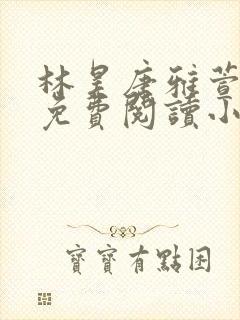 林昊唐雅萱
免費閱讀小
寶寶有點困